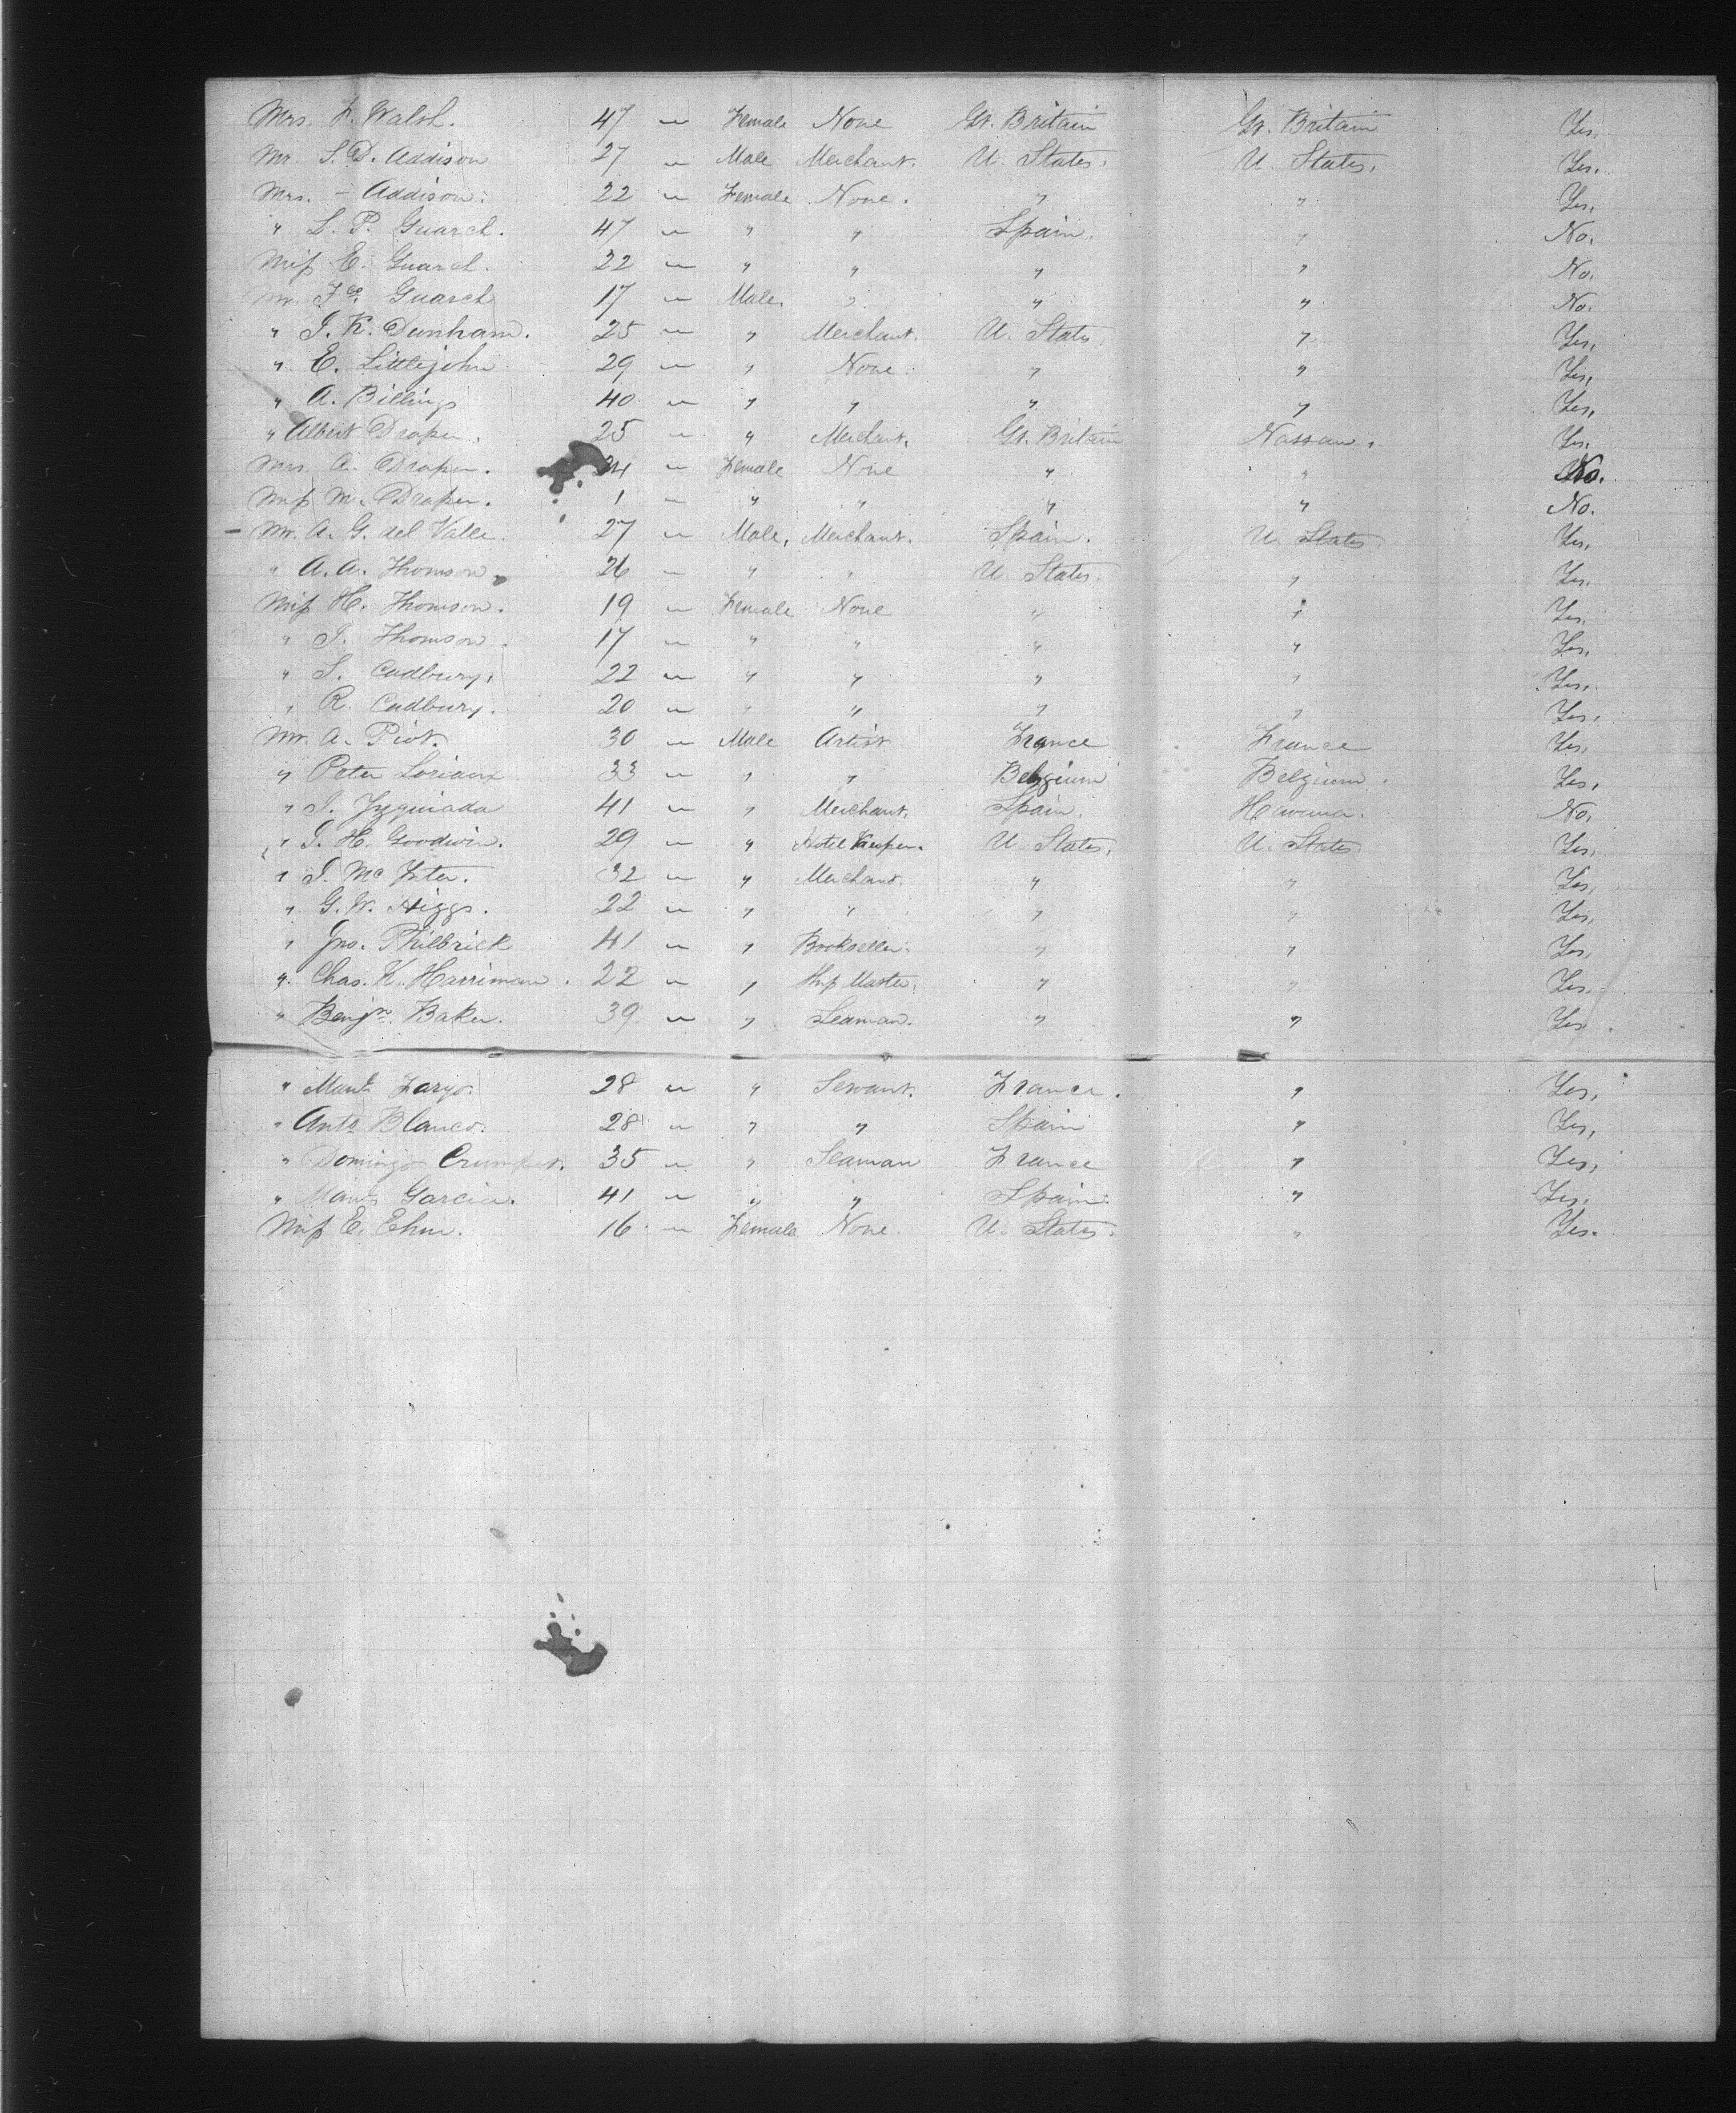 Mrs. F. Walsh. 47 " Female None Gt. Britain Gt. Britain Yes.
Mr. S. D. Addison 27 " Male Merchant. U. States. U. States. Yes.
Mrs. – Addison. 22 " Female None. " " Yes.
" L. P. Guarch. 47 " " " Spain. " No.
Miss E. Guarch. 22 " " " " " No.
Mr. Fco. Guarch 17 " Male. " " " No.
" J. K. Dunham. 25 " " Merchant. U. States " Yes.
" E. Littlejohn 29 " " None. " " Yes.
" A. Billings 40 " " " " " Yes.
" Albert Draper. 25 " " Merchant. Gt. Britain Nassau. Yes.
Mrs. A. Draper. 24 " Female None " " No.
Miss M. Draper. 1 " " " " " No.
– Mr. A. G. del Valle. 27 " Male. Merchant. Spain. U. States. Yes.
" A. A. Thomson. 26 " " " U. States. " Yes.
Miss H. Thomson. 19 " Female None " " Yes.
" J. Thomson. 17 " " " " " Yes.
" S. Cadbury. 22 " " " " " Yes.
" R. Cadbury. 20 " " " " " Yes.
Mr. A. Piot. 30 " Male Artist France France Yes.
" Peter Loriaux 33 " " " Belgium Belgium. Yes.
" J. Yzquiada 41 " " Merchant. Spain. Havana. No.
" J. H. Goodwin. 29 " " Hotel Keeper. U. States. U. States. Yes.
" J. Mc 32 " " Merchant. " " Yes.
" G. W. Higgs. 22 " " " " " Yes.
" Jno. Philbrick 41 " " Bookseller. " " Yes.
" Chas. K. Harriman. 22 " " Ship Master. " " Yes.
" Benjn. Baker. 39 " " Seaman. " " Yes.
" Manl. 28 " " Servant. France. " Yes.
" Anto. Blanco. 28 " " " Spain " Yes.
" Domingo 35 " " Seaman France " Yes.
" Manl. Garcia. 41 " " " Spain. " Yes.
Miss E. Ehm. 16 " Female None. U. States. " Yes.